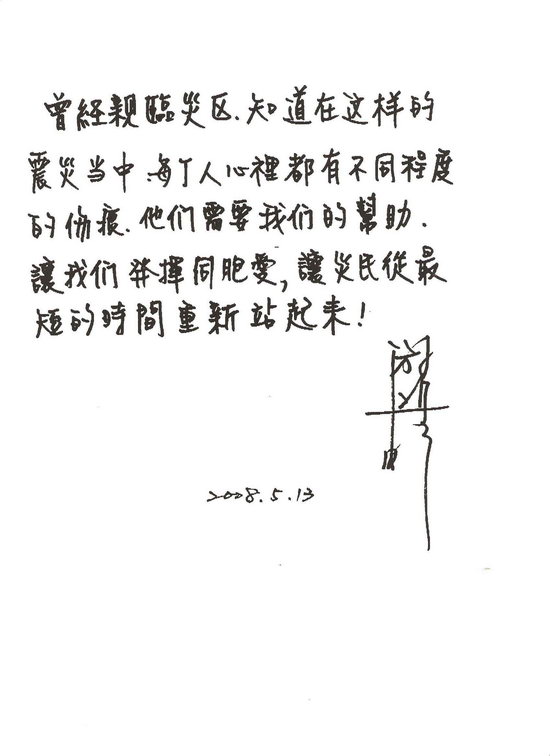 曾経親臨災区.知道在这样的
震災当中.每丁人心裡都有不同程度
的伤痕.他们需要我们的幫助.
讓我们発揮同胞愛,讓災民從最
短的時間重新站起来!
2008.5.13